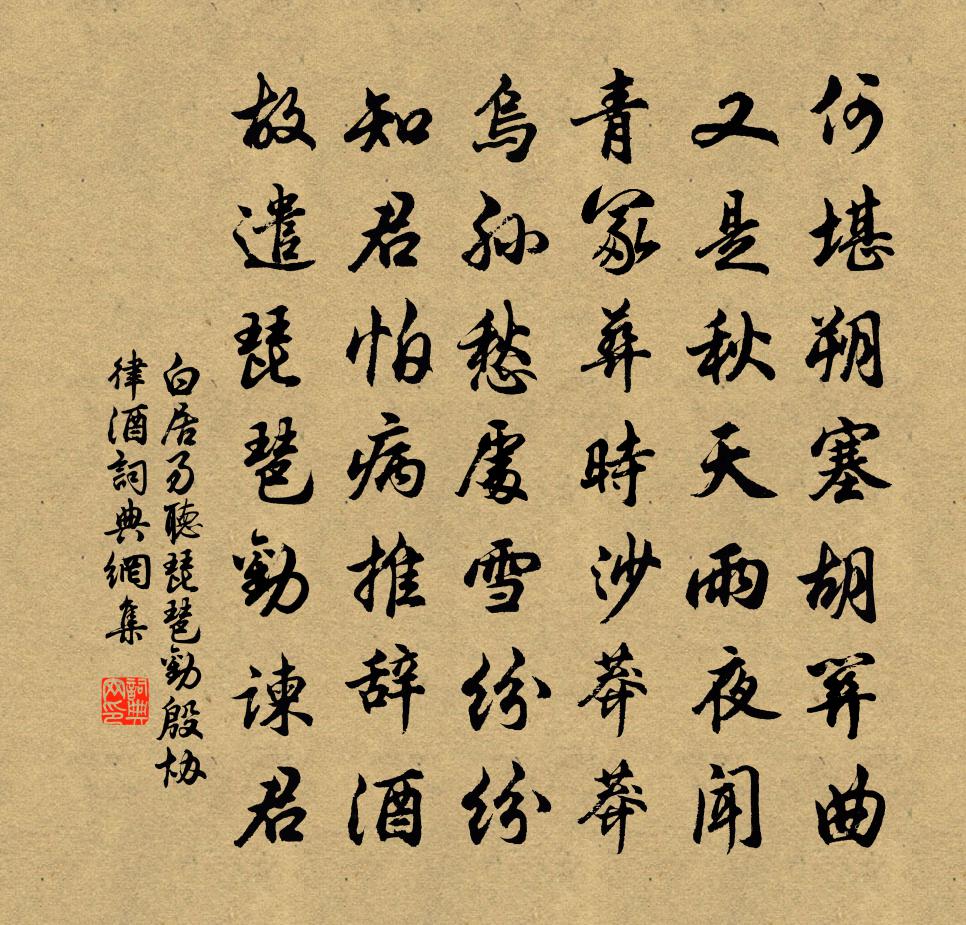 何堪朔塞胡笳曲
又是秋天雨夜闻
青冢葬時沙莽莽
烏孙愁處雪纷纷
知君怕病推辞酒
故遣琵琶勸諫君
白居易聽琵琶勸殷协
律酒詞典網集
詞典
网印